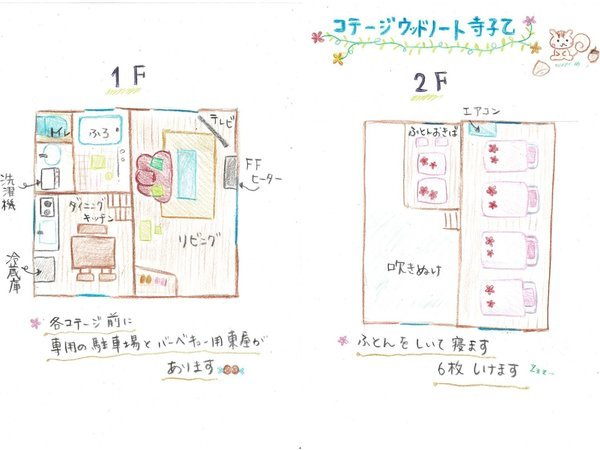 コテージウッドノート寺子乙
1F
トイレ
ふろ
テレビ
FF
ヒーター
洗濯機
ダイニング
キッチン
リビング
冷蔵庫
各コテージ前に
専用の駐車場とバーベキュー用東屋が
あります
2F
エアコン
ふとんおきば
吹きぬけ
ふとんをしいて寝ます
6枚しけます Zzz..